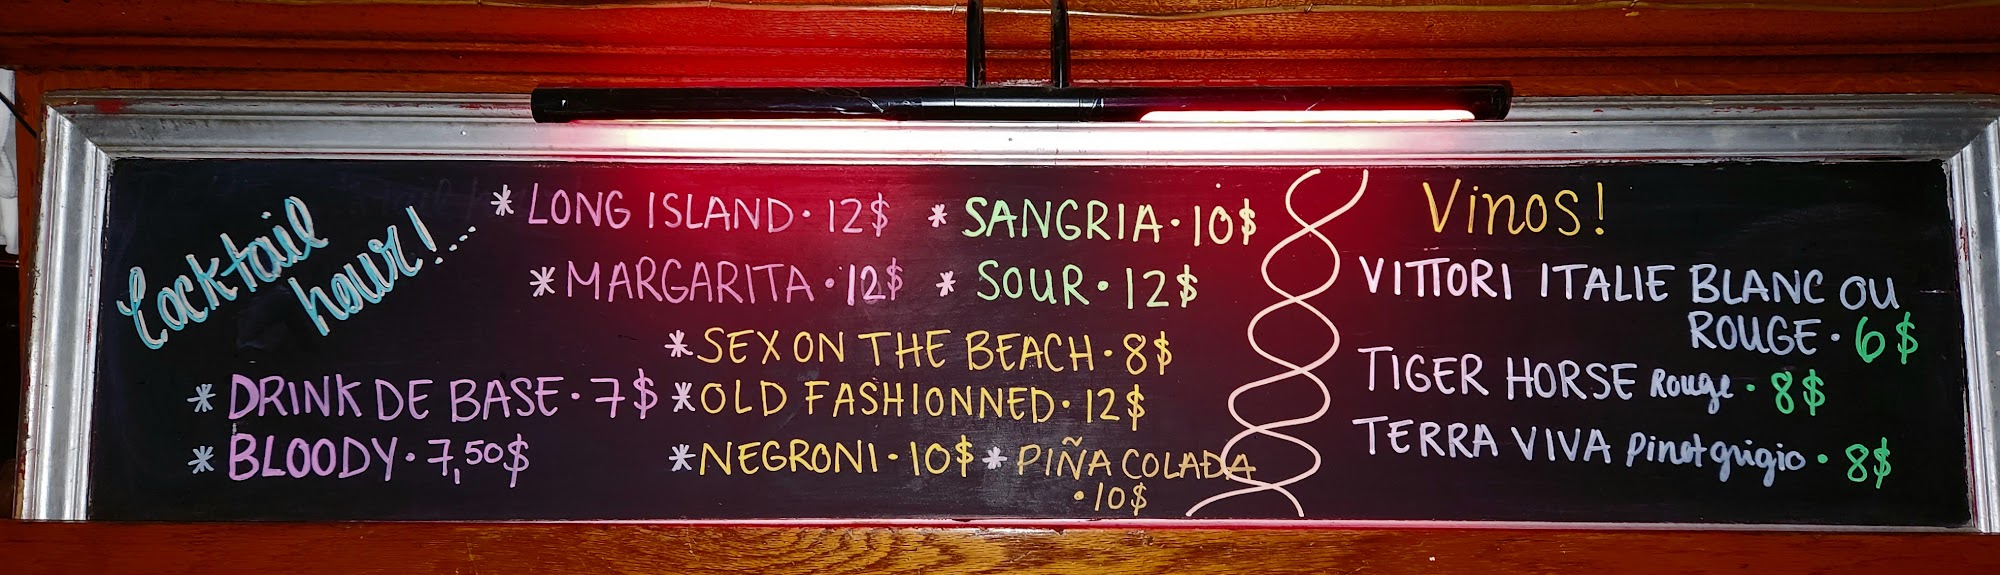 Cocktail
hour!...
* LONG ISLAND · 12$
* MARGARITA · 12$
* SANGRIA · 10$
* SOUR · 12$
* SEX ON THE BEACH · 8$
* DRINK DE BASE · 7$
* OLD FASHIONNED · 12$
* BLOODY · 7,50$
* NEGRONI · 10$
* PIÑA COLADA
· 10$
Vinos!
VITTORI ITALIE BLANC OU
ROUGE · 6$
TIGER HORSE Rouge · 8$
TERRA VIVA Pinot grigio · 8$